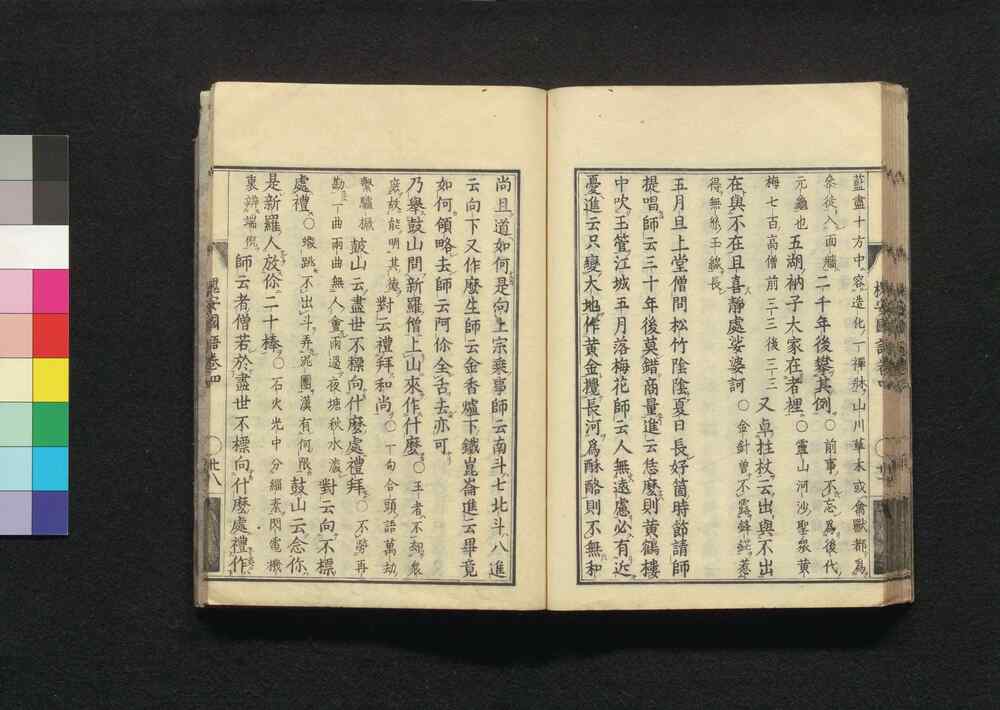 藍盡十方中容造化丁禪牀山川草木或禽獸都爲
叅徒人面鸕 二千年後攀其倒○前事不忘爲後代
元龜也 五湖衲子大家在者裡○靈山河沙聖衆黄
梅七百高僧前三三後三三 又卓拄杖云出與不出
在與不在且喜靜處娑婆訶○金針曽不露鋒鋩惹
得無絲玉線長
五月旦上堂僧問松竹陰陰夏日長好箇時節請師
提唱師云三十年後莫錯商量進云恁麽則黄鶴樓
中吹玉笛江城五月落梅花師云人無遠慮必有近
憂進云只變大地作黄金攪長河爲酥酪則不無和
尚且道如何是向上宗乘事師云南斗七北斗八進
云向下又作麽生師云金香爐下鐵崑崙進云畢竟
如何領略去師云阿你全舌去亦可
乃舉鼓山問新羅僧上山來作什麽○王者不刼衆
底紋能明其德 對云禮拜和尚○一句合頭語萬劫
繫驢橛 鼓山云盡世不標向什麽處禮拜○不勞再
勘丁曲兩曲無人會雨過夜塘秋水深 對云向不標
處禮○蝦跳不出斗弄泥團漢有何限 鼓山云念你
是新羅人放你二十棒○石火光中分緇素閃電機
裏辨端倪 師云者僧若於盡世不標向什麽處禮作
槐安國語卷四 ○ 廿八